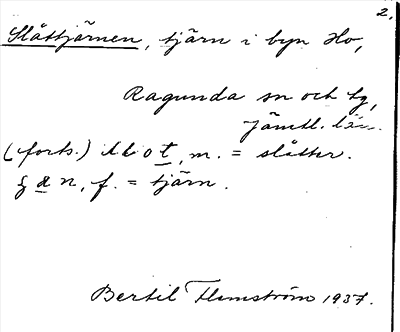 2.
Slåttjärnen, tjärn i byn Ho,
Ragunda sn och tg,
Jämtl. län.
(forts.) , m. = slåtter.
, f. = tjärn.
Bertil Flemström 1937.